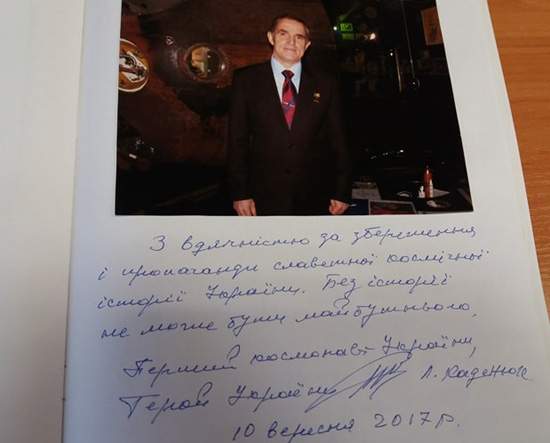 З вдячністю за збереження
і пропаганди славетної космічної
історії України. Без історії
не може бути майбутнього.
Перший космонавт України,
Герой України Л. Каденюк
10 вересня 2017 р.